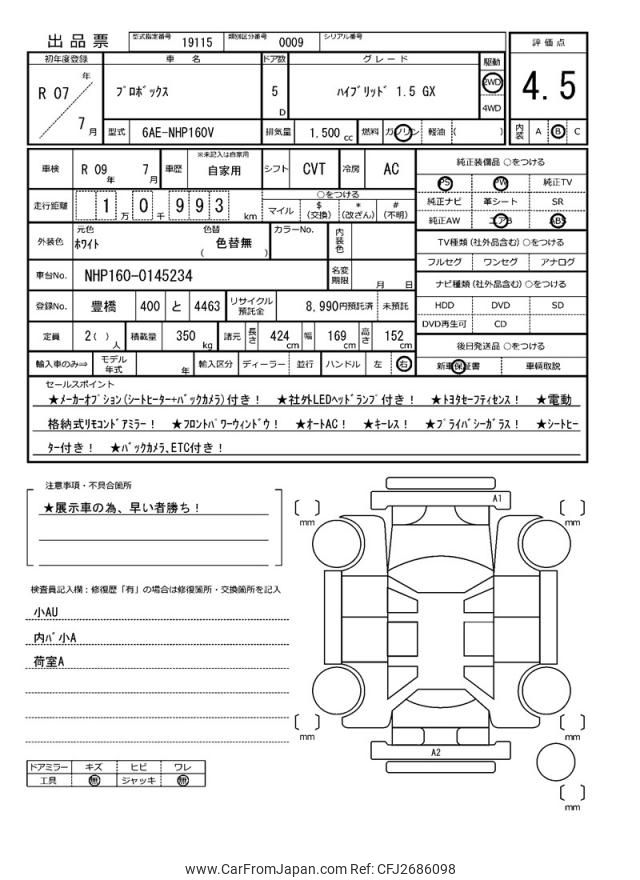 出品票 型式指定番号 19115 類別区分番号 0009 シリアル番号
評価点
4.5
内装 A B C
初年度登録 車名 ドア数 グレード 駆動
R 07 年 7 月
プロボックス 5 D ハイブリッド 1.5 GX 2WD 4WD
型式 6AE-NHP160V 排気量 1.500 cc 燃料 ガソリン 軽油 ( )
車検 R 09 年 7 月 車歴 ※未記入は自家用 自家用 シフト CVT 冷房 AC
走行距離 1 万 0 千 9 9 3 km
○をつける
マイル $ (交換) * (改ざん) # (不明)
外装色 元色 ホワイト 色替 ( 色替無 ) カラーNo. 内装色
車台No. NHP160-0145234 名変期限 月 日
登録No. 豊橋 400 と 4463 リサイクル預託金 8,990円預託済 未預託
定員 2( ) 人 積載量 350 kg 諸元 長さ 424 cm 幅 169 cm 高さ 152 cm
輸入車のみ⇨ モデル年式 年 輸入区分 ディーラー 並行 ハンドル 左 右
純正装備品 ○をつける
PS PW 純正TV
純正ナビ 革シート SR
純正AW エアB ABS
TV種類 (社外品含む) ○をつける
フルセグ ワンセグ アナログ
ナビ種類 (社外品含む) ○をつける
HDD DVD SD
DVD再生可 CD
後日発送品 ○をつける
新車保証書 車輌取説
セールスポイント
★メーカーオプション(シートヒーター+バックカメラ)付き! ★社外LEDヘッドランプ付き! ★トヨタセーフティセンス! ★電動
格納式リモコンドアミラー! ★フロントパワーウィンドウ! ★オートAC! ★キーレス! ★プライバシーガラス! ★シートヒー
ター付き! ★バックカメラ、ETC付き!
注意事項・不具合箇所
★展示車の為、早い者勝ち!
検査員記入欄:修復歴「有」の場合は修復箇所・交換箇所を記入
小AU
内パ小A
荷室A
ドアミラー キズ ヒビ ワレ
工具 無 ジャッキ 無
A1
A2
mm
mm
mm
mm
mm
www.CarFromJapan.com Ref: CFJ2686098